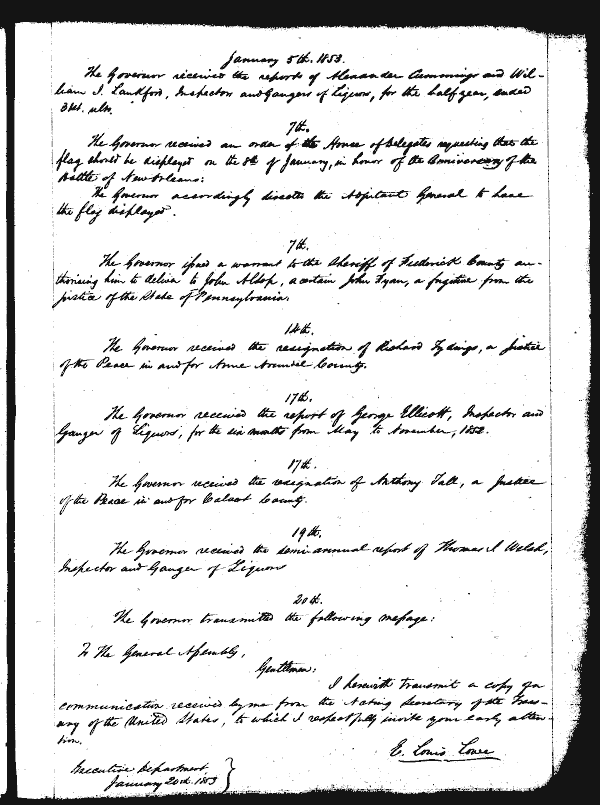 January 5th. 1853.
The Governor received the reports of Alexander Cummings and Wil-
liam J. Lankford, Inspectors and Gaugers of Liquors, for the half year, ended
31st. ulto.
7th.
The Governor received an order of the House of Delegates requesting that the
flag should be displayed on the 8th of January, in honor of the Anniversary of the
Battle of New Orleans:
The Governor accordingly directs the Adjutant General to have
the flag displayed.
7th.
The Governor issued a warrant to the Sheriff of Frederick County au-
thorising him to deliver to John, a certain John, a fugitive from the
justice of the State of Pennsylvania.
14th.
The Governor received the resignation of Richard Tydings, a Justice
of the Peace in and for Anne Arundel County.
17th.
The Governor received the report of George Ellicott, Inspector and
Gauger of Liquors, for the six months from May to November, 1852.
17th.
The Governor received the resignation of Anthony Tall, a Justice
of the Peace in and for Calvert County.
19th.
The Governor received the semi annual report of Thomas S Welsh,
Inspector and Gauger of Liquors
20th.
The Governor transmitted the following message:
To The General Assembly,
Gentlemen:
I herewith transmit a copy of a
communication received by me from the Acting Secretary of the Treas-
ury of the United States, to which I respectfully invite your early atten-
tion.
E. Louis Lowe
Executive Department
January 20th. 1853